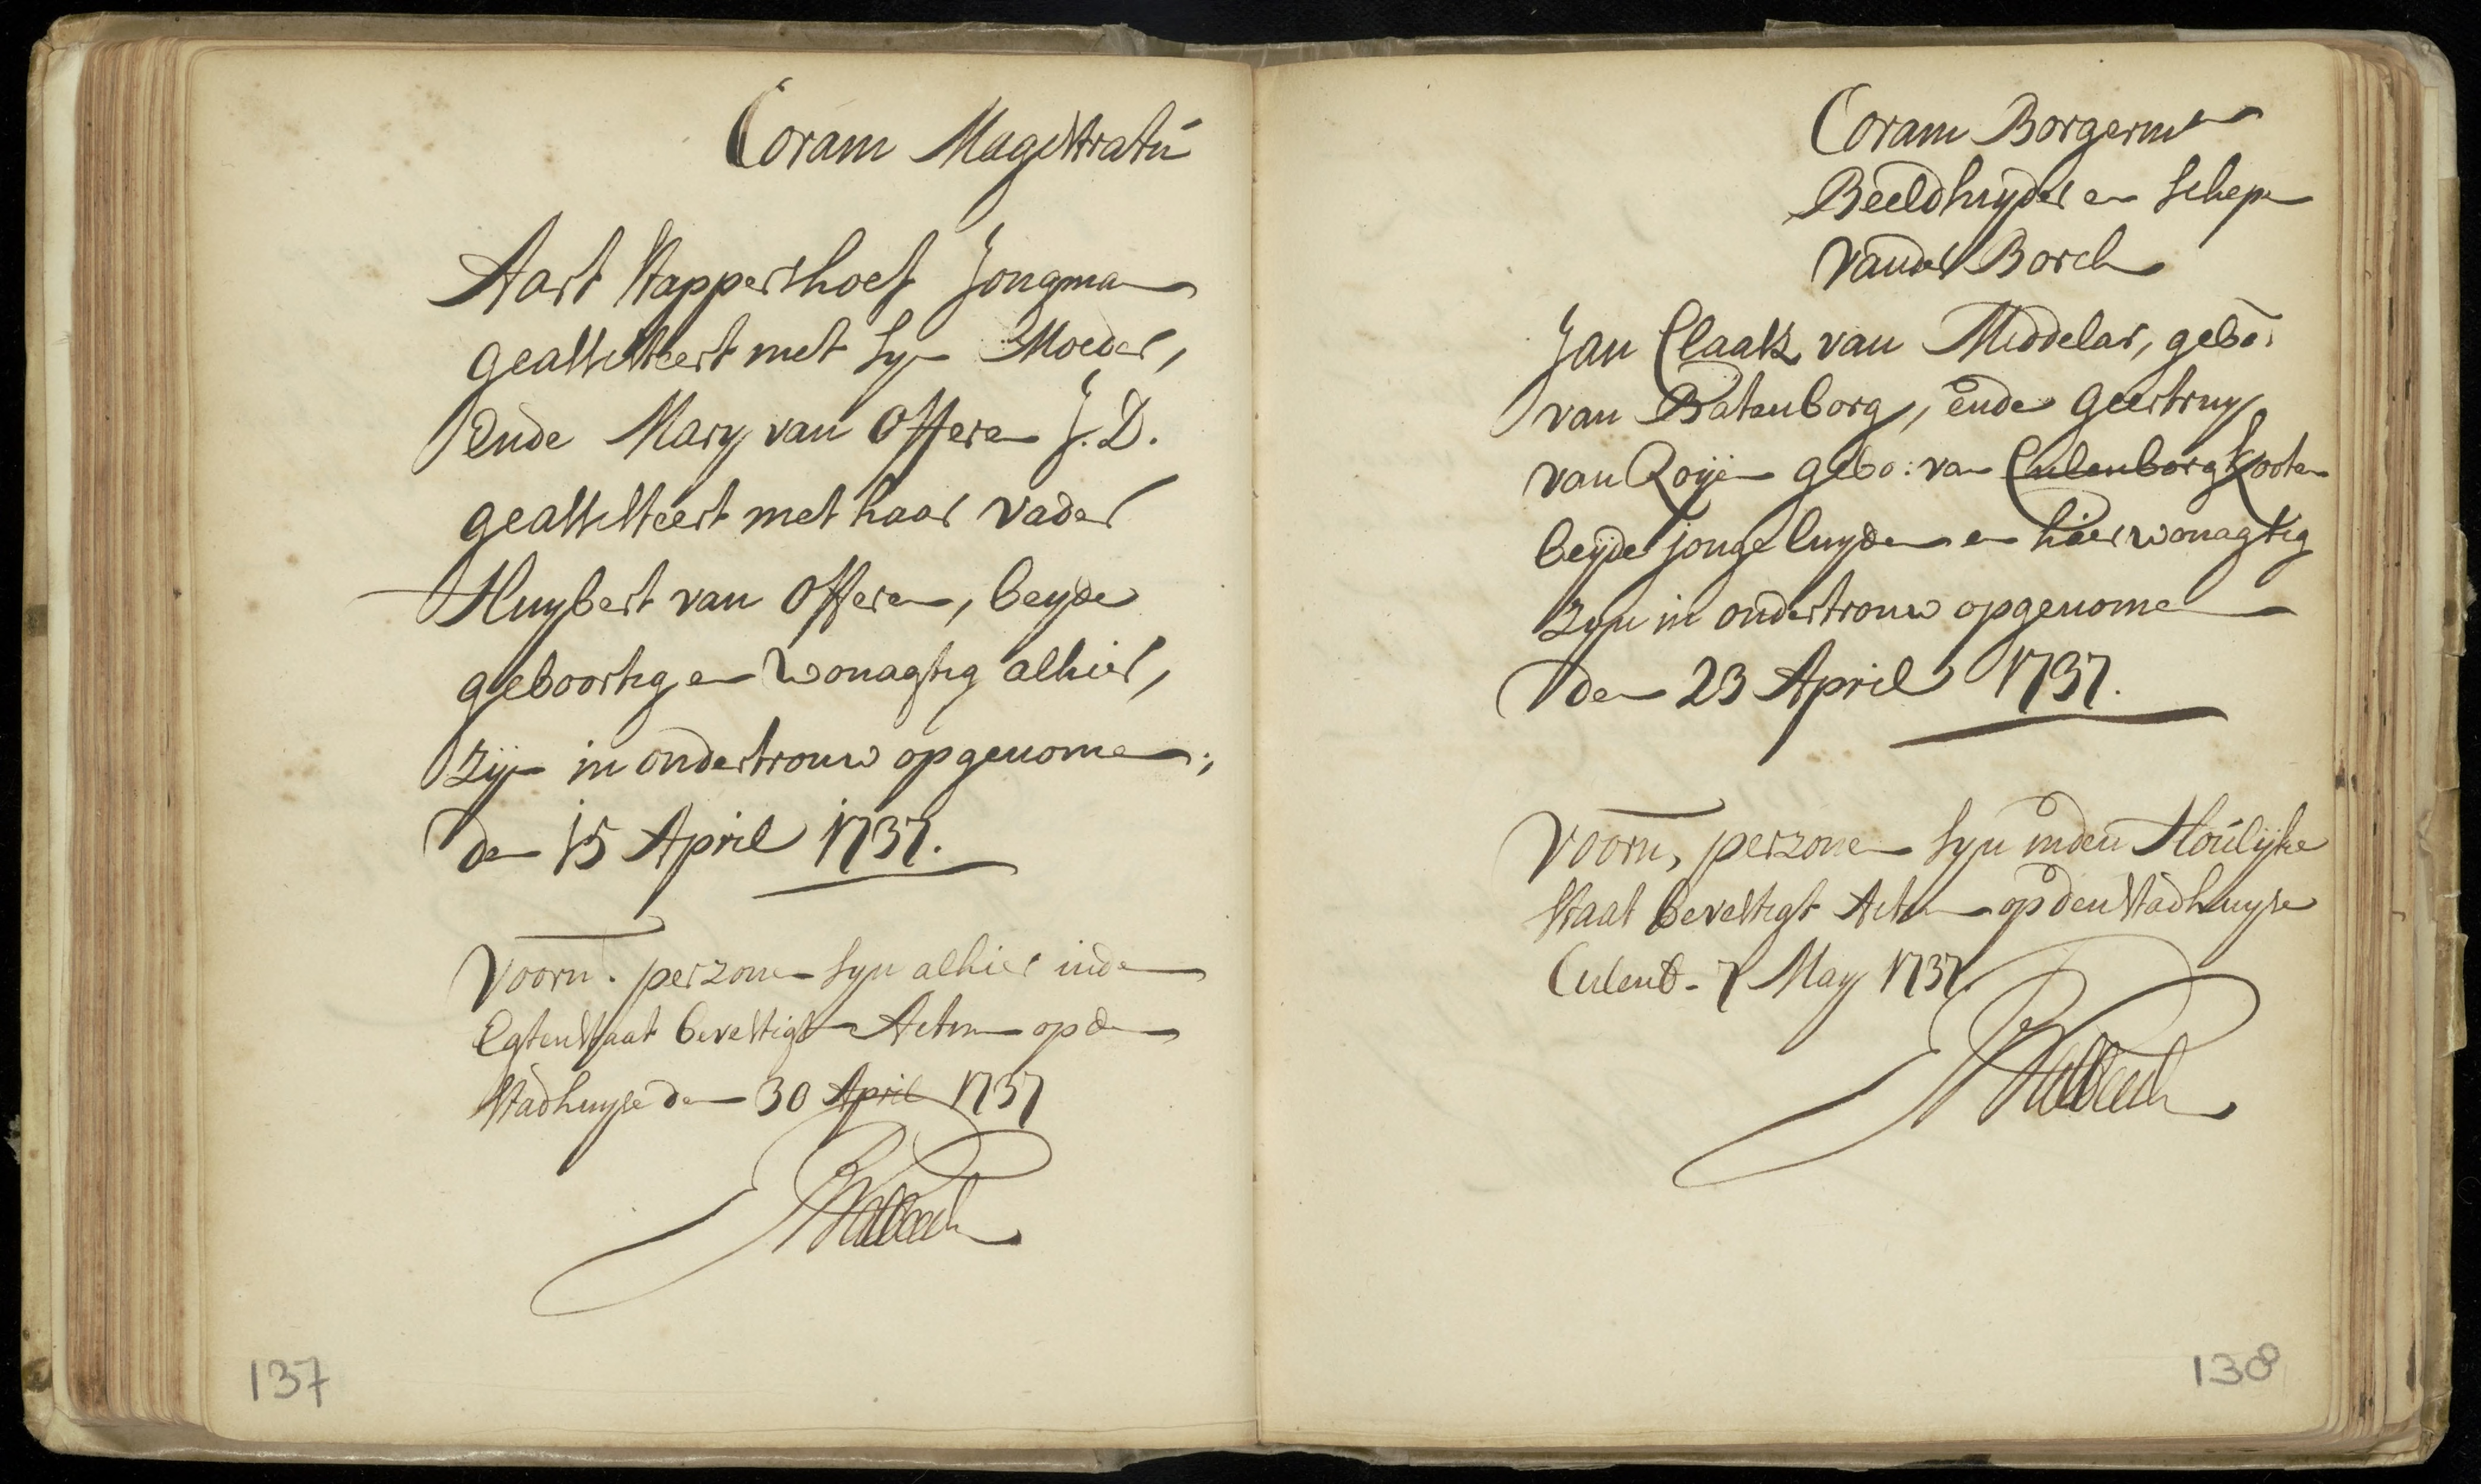 Coram Magistratú
Aart Stappershoef Jongman
geassisteert met syn Moeder,
ende Mary van Offeren J. D.
geassisteert met haar vader
Huybert van Offeren, beyde
geboortig en wonagtig alhier,
zijn in ondertrouw opgenomen;
den 15 April 1737.
Voorn. perzonen syn alhier inden
Egten staat bevestigt Actum op den
Stadhuyse den 30 April 1737
137
Coram Borgermr
Beeldsnyder en Schepen
vander Borch
Jan Claasz van Middelar, gebo.
van Batenborg, ende Geertruy
van Roijen gebo: van Culenborg Kooten
beyde jonge luyden en hier wonagtig
zyn in ondertrouw opgenomen
den 23 April 1737.
Voorn, perzonen syn inden Houlijke
Staat bevestigt Actum op den Stadhuyse
Culenb. 7 May 1737.
138